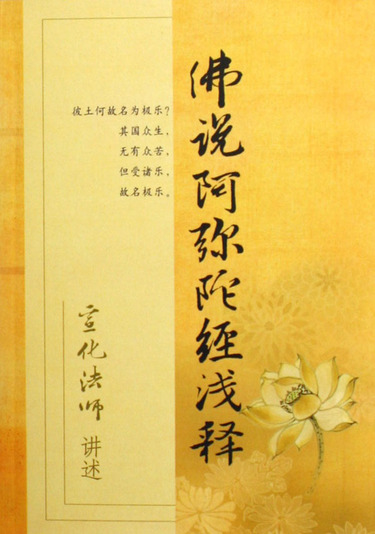 佛说阿弥陀经浅释
彼土何故名为极乐?
其国众生,
无有众苦,
但受诸乐,
故名极乐。
宣化法师 讲述